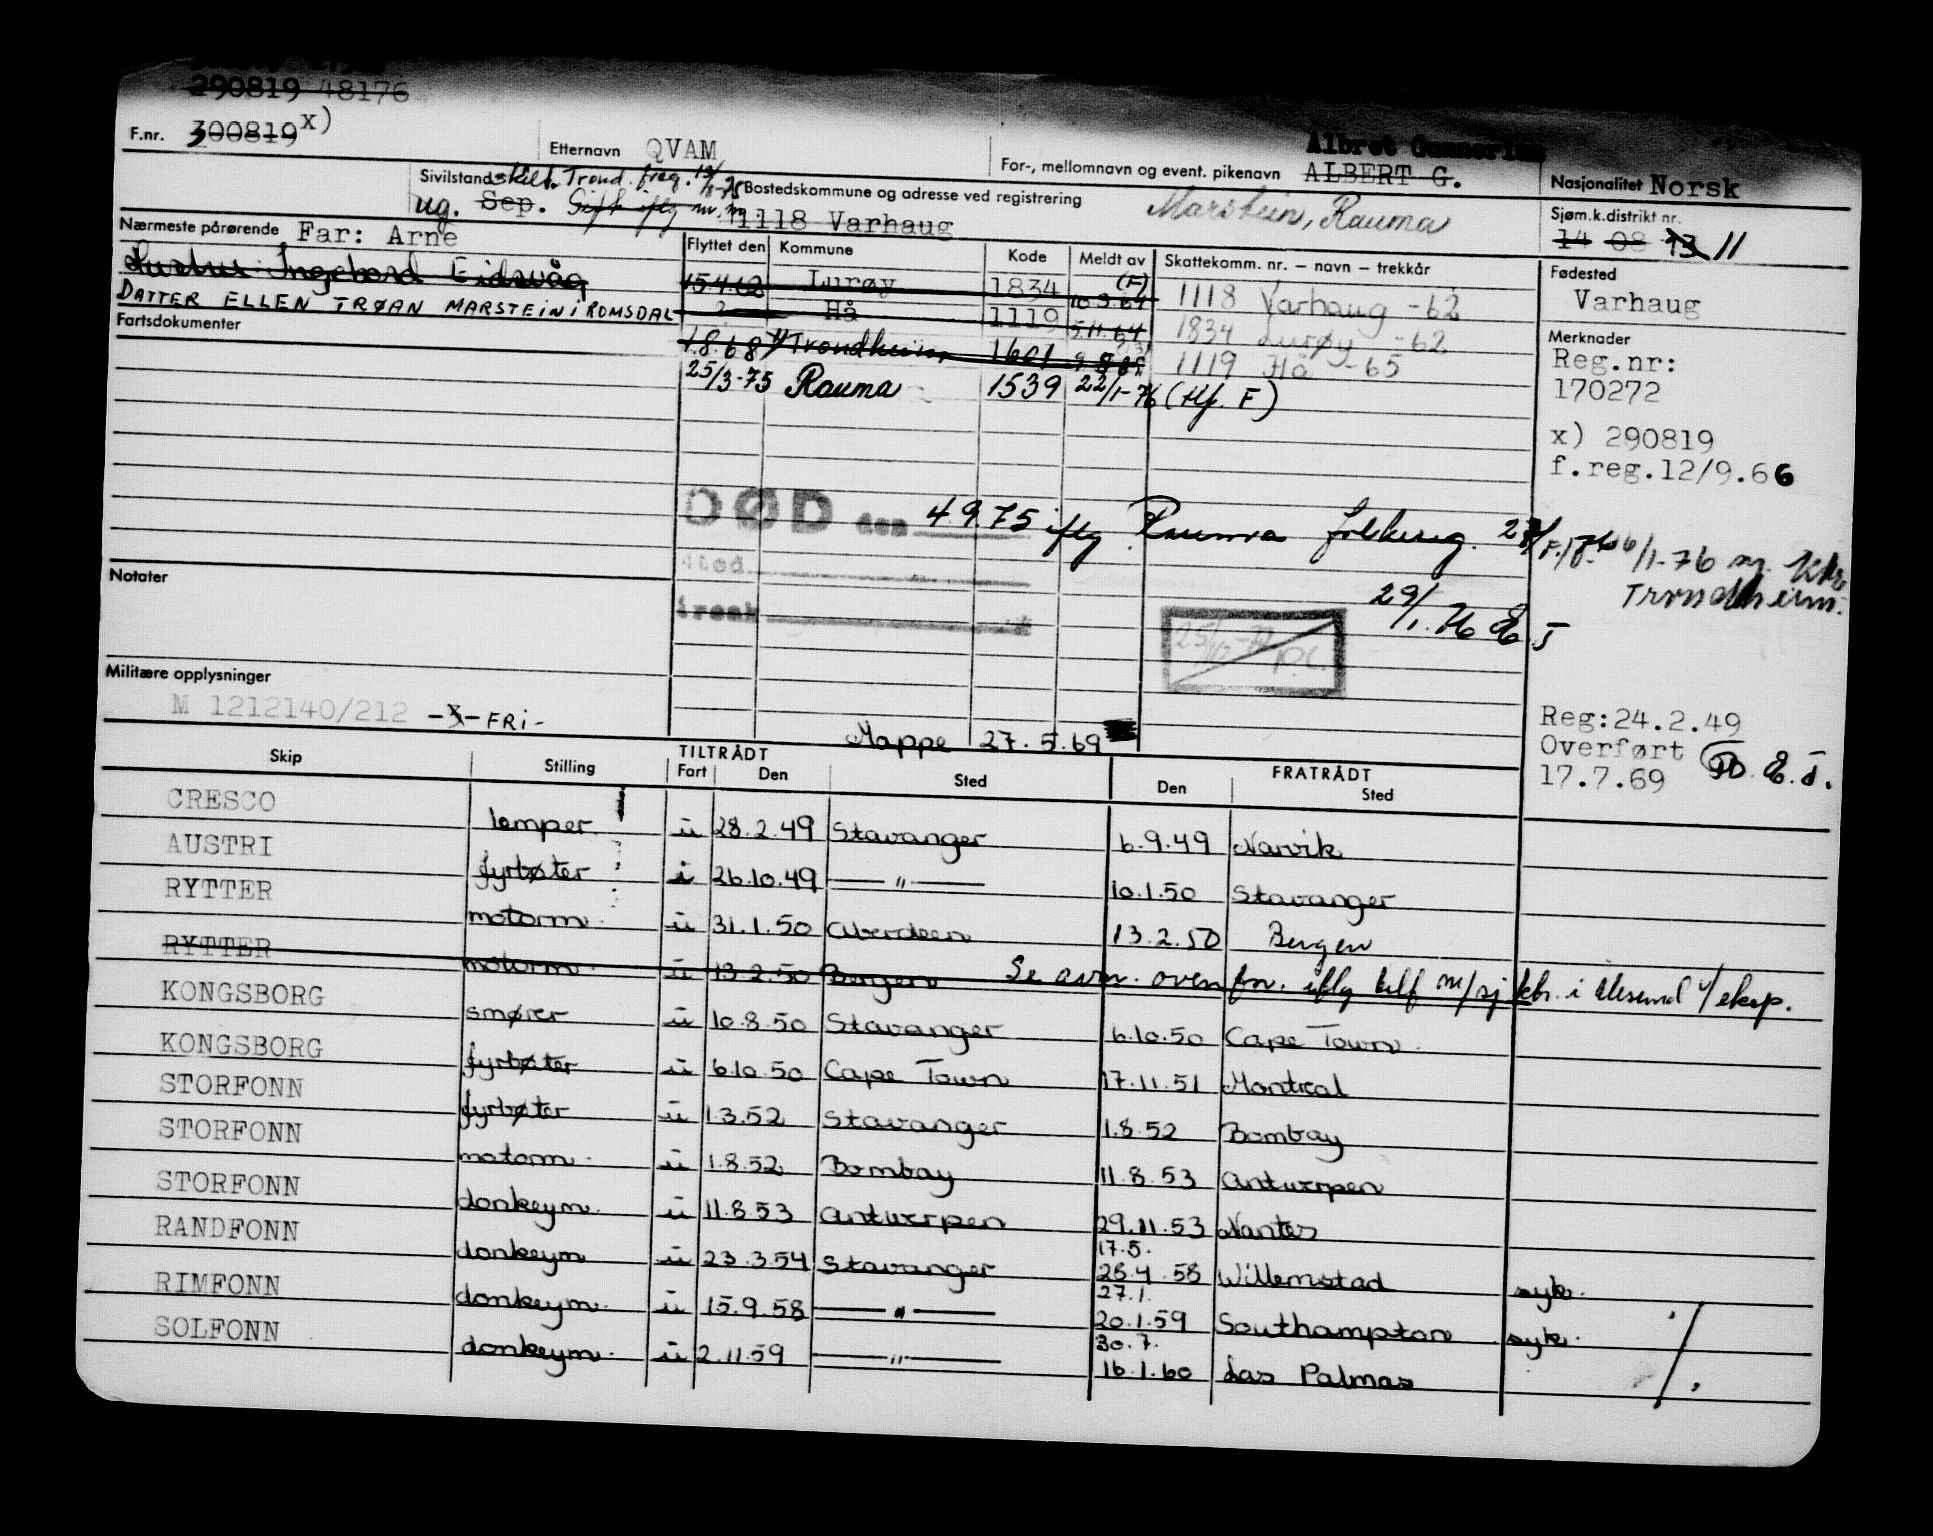 290819 48176
F.nr. 300819 x)
Etternavn QVAM
For-, mellomnavn og event. pikenavn ALBERT G.
Albret Gunnerius
Nasjonalitet Norsk
Sivilstand skilt. Trond. freg.
ug. Sep. Gift iflg m.m
Bostedskommune og adresse ved registrering
1118 Varhaug
Marstein, Rauma
Sjøm.k.distrikt nr.
14 08 13 11
Nærmeste pårørende Far: Arne
Søster Ingebord Eidsvåg
DATTER ELLEN TRØAN MARSTEIN i ROMSDAL
Flyttet den Kommune Kode Meldt av Skattekomm. nr. – navn – trekkår
15.4.62 Lurøy 1834 10.9.64 (F) 1118 Varhaug -62
? Hå 1119 5.11.64 1834 Lurøy -62
1.8.68 Trondheim 1601 1119 Hå -65
25/3-75 Rauma 1539 22/1-76 (tlf. F)
Fødested
Varhaug
Fartsdokumenter
Merknader
Reg.nr:
170272
x) 290819
f.reg.12/9.66
DØD den 4.9.75 iflg Rauma folkereg.
6/1-76 Trondheim.
sted "
29/1.76 E.J
Notater
Militære opplysninger
M 1212140/212 -X- FRI-
Mappe 27.5.69
Reg:24.2.49
Overført E.J.
17.7.69
TILTRÅDT FRATRÅDT
Skip Stilling Fart Den Sted Den Sted
CRESCO lemper u 28.2.49 Stavanger 6.9.49 Narvik
AUSTRI fyrbøter i 26.10.49 —"— 10.1.50 Stavanger
RYTTER motorm. u 31.1.50 Aberdeen 13.2.50 Bergen
RYTTER motorm. u 13.2.50 Bergen Se anm. ovenfor. iflg tlf m/sj.ktr. i Ålesund v/eksp.
KONGSBORG smører u 10.8.50 Stavanger 6.10.50 Cape Town
KONGSBORG fyrbøter u 6.10.50 Cape Town 17.11.51 Montreal
STORFONN fyrbøter u 1.3.52 Stavanger 1.8.52 Bombay
STORFONN motorm. u 1.8.52 Bombay 11.8.53 Antwerpen
STORFONN donkeym. u 11.8.53 Antwerpen 29.11.53 Nantes
RANDFONN donkeym u 23.3.54 Stavanger 17.5. 28.4.58 Willemstad syk.
RIMFONN donkeym. u 15.9.58 —"— 27.1. 20.1.59 Southampton syk.
SOLFONN donkeym. u 2.11.59 —"— 30.7. 16.1.60 Las Palmas